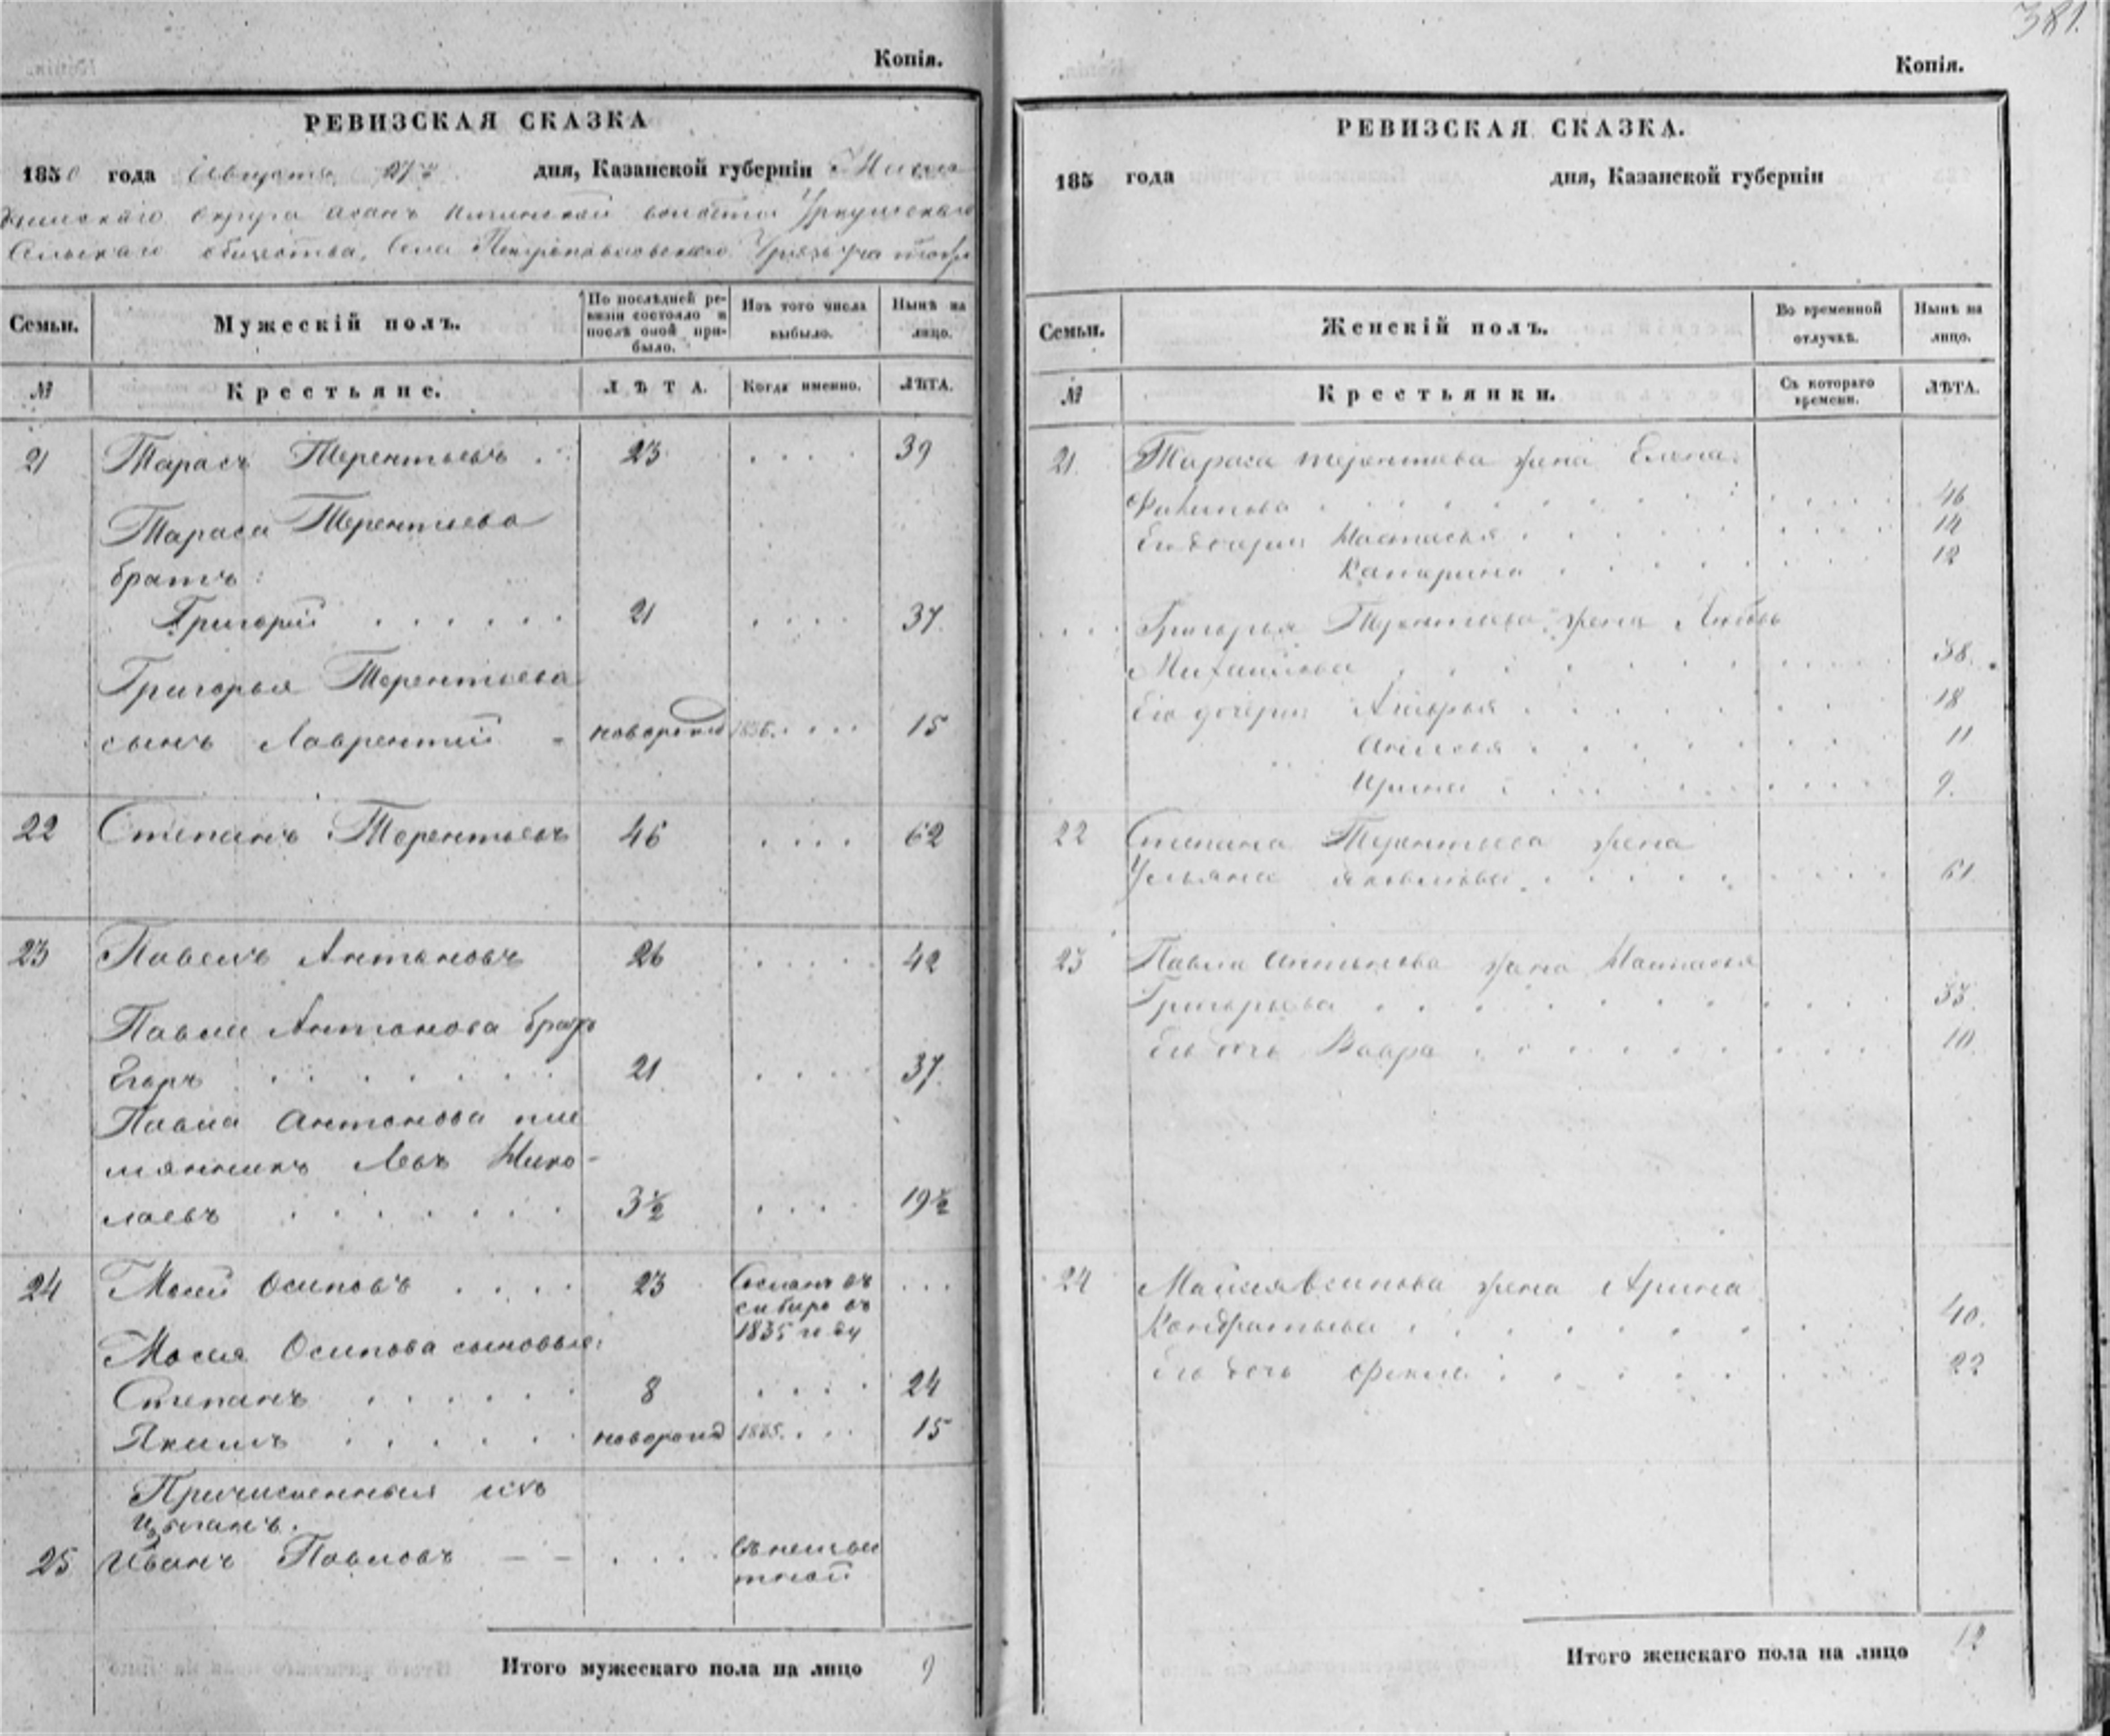 Копія.
РЕВИЗСКАЯ СКАЗКА
1850 года Августа 27 дня, Казанской губерніи
округа волости
Сельскаго общества, Села Петропавловскаго
Семьи.
Мужескій полъ.
По послѣдней ревизіи состояло и послѣ оной прибыло.
Изъ того числа выбыло.
Нынѣ на лицо.
№
Крестьяне.
ЛѢТА.
Когда именно.
ЛѢТА.
21 Тарасъ Терентьевъ 23 39
Тараса Терентьева
братъ:
Григорій 21 37
Григорья Терентьева
сынъ Лаврентій новорожд 1836 15
22 Степанъ Терентьевъ 46 62
23 Павелъ Антоновъ 26 42
Павла Антонова братъ
Егоръ 21 37
Павла Антонова пле
мянникъ Левъ Нико-
лаевъ 3½ 19½
24 Мосей Осиповъ 23 Сосланъ въ
сибирь въ
1835 году
Мосея Осипова сыновья:
Степанъ 8 24
Якимъ новорожд 1835 15
Причисленныя изъ
цыганъ.
25 Иванъ Павловъ
Итого мужескаго пола на лицо 9
381.
Копія.
РЕВИЗСКАЯ СКАЗКА.
185 года дня, Казанской губерніи
Семьи.
Женскій полъ.
Во временной отлучкѣ.
Нынѣ на лицо.
№
Крестьянки.
Съ котораго времени.
ЛѢТА.
21. Тараса Терентьева жена Елена
Филипова 46
Его дочери Настасья 14
Катерина 12
Григорья Терентьева жена Любовь
Михайлова 38
Его дочери 18
11
Ирина 9.
22 Степана Терентьева жена
Ульяна Яковлева 61
23 Павла Антонова жена Настасья
Григорьева 33.
Его дочь 10
24 Осипова жена Арина
Кондратьева 40.
Его дочь Фекла 22
Итого женскаго пола на лицо 12